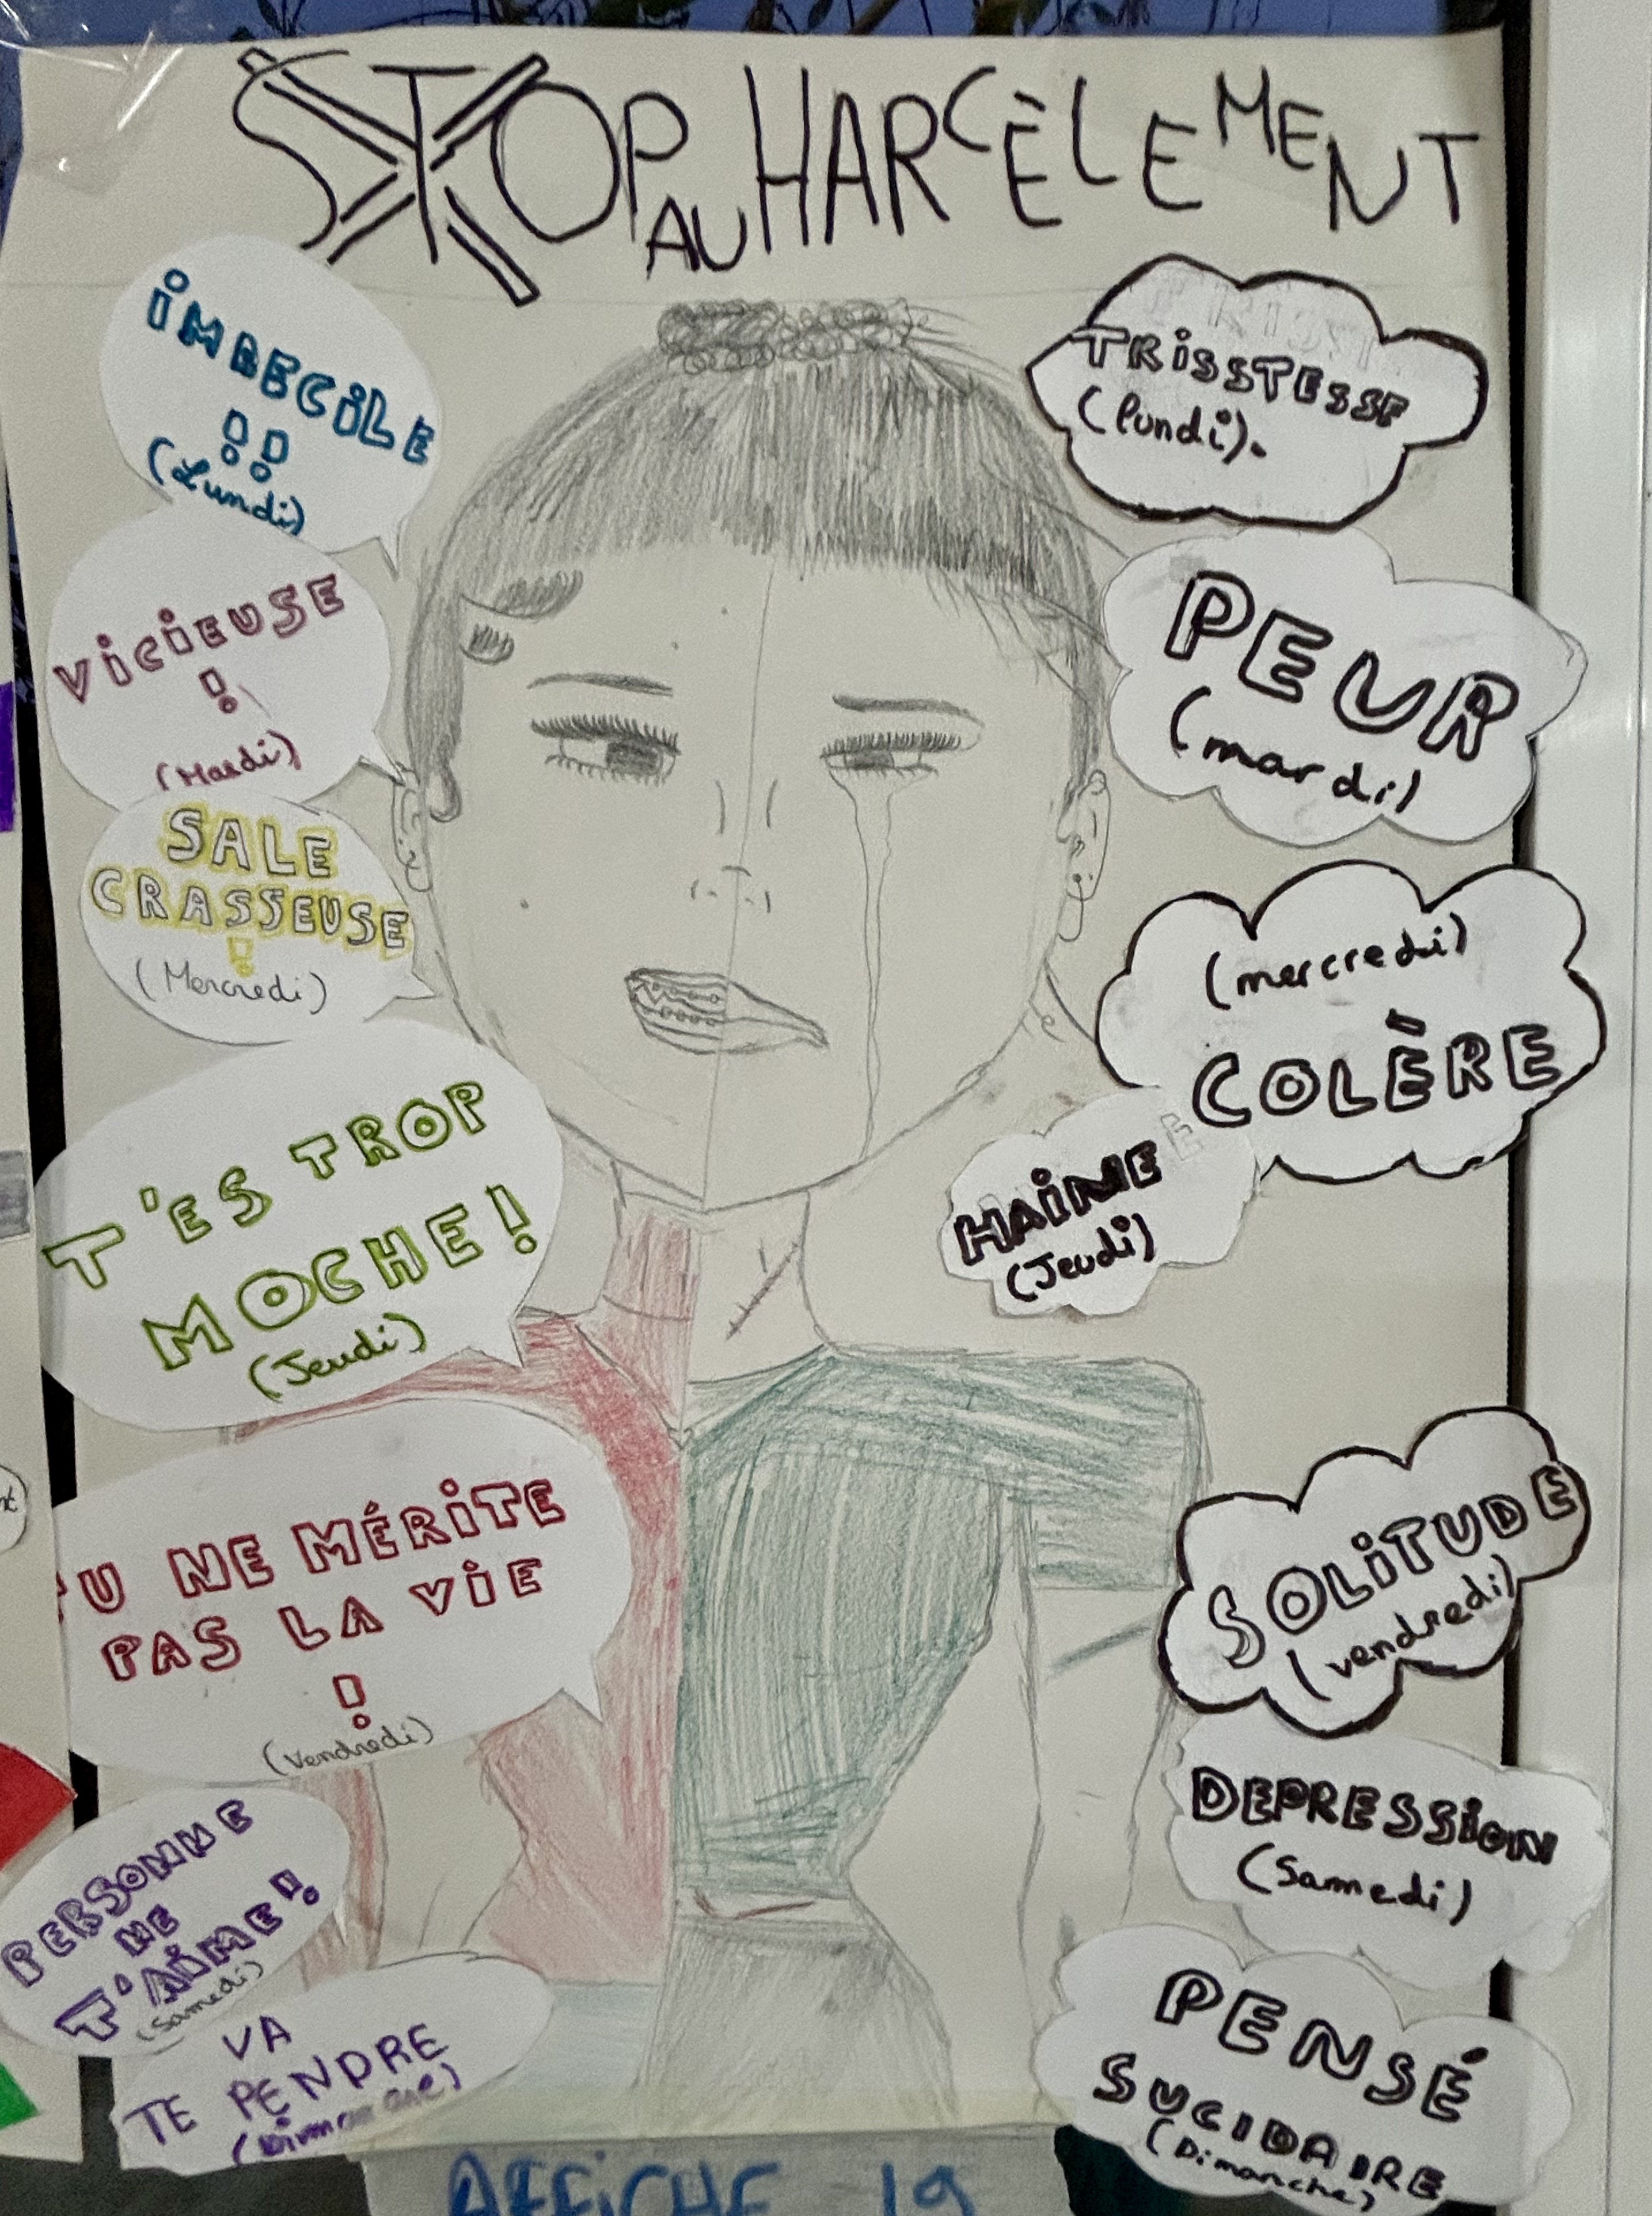 STOP AU HARCÈLEMENT
IMBECILE
!!
(Lundi)
VICIEUSE
!
(Mardi)
SALE
CRASSEUSE
!
(Mercredi)
T'ES TROP
MOCHE!
(Jeudi)
TU NE MÉRITE
PAS LA VIE
!
(Vendredi)
PERSONNE
NE
T'AIME!
(Samedi)
VA
TE PENDRE
(Dimanche)
TRISSTESSE
(lundi).
PEUR
(mardi)
(mercredi)
COLÈRE
HAINE
(Jeudi)
SOLITUDE
(vendredi)
DEPRESSION
(Samedi)
PENSÉ
SUCIDAIRE
(Dimanche)
AFFICHE 19